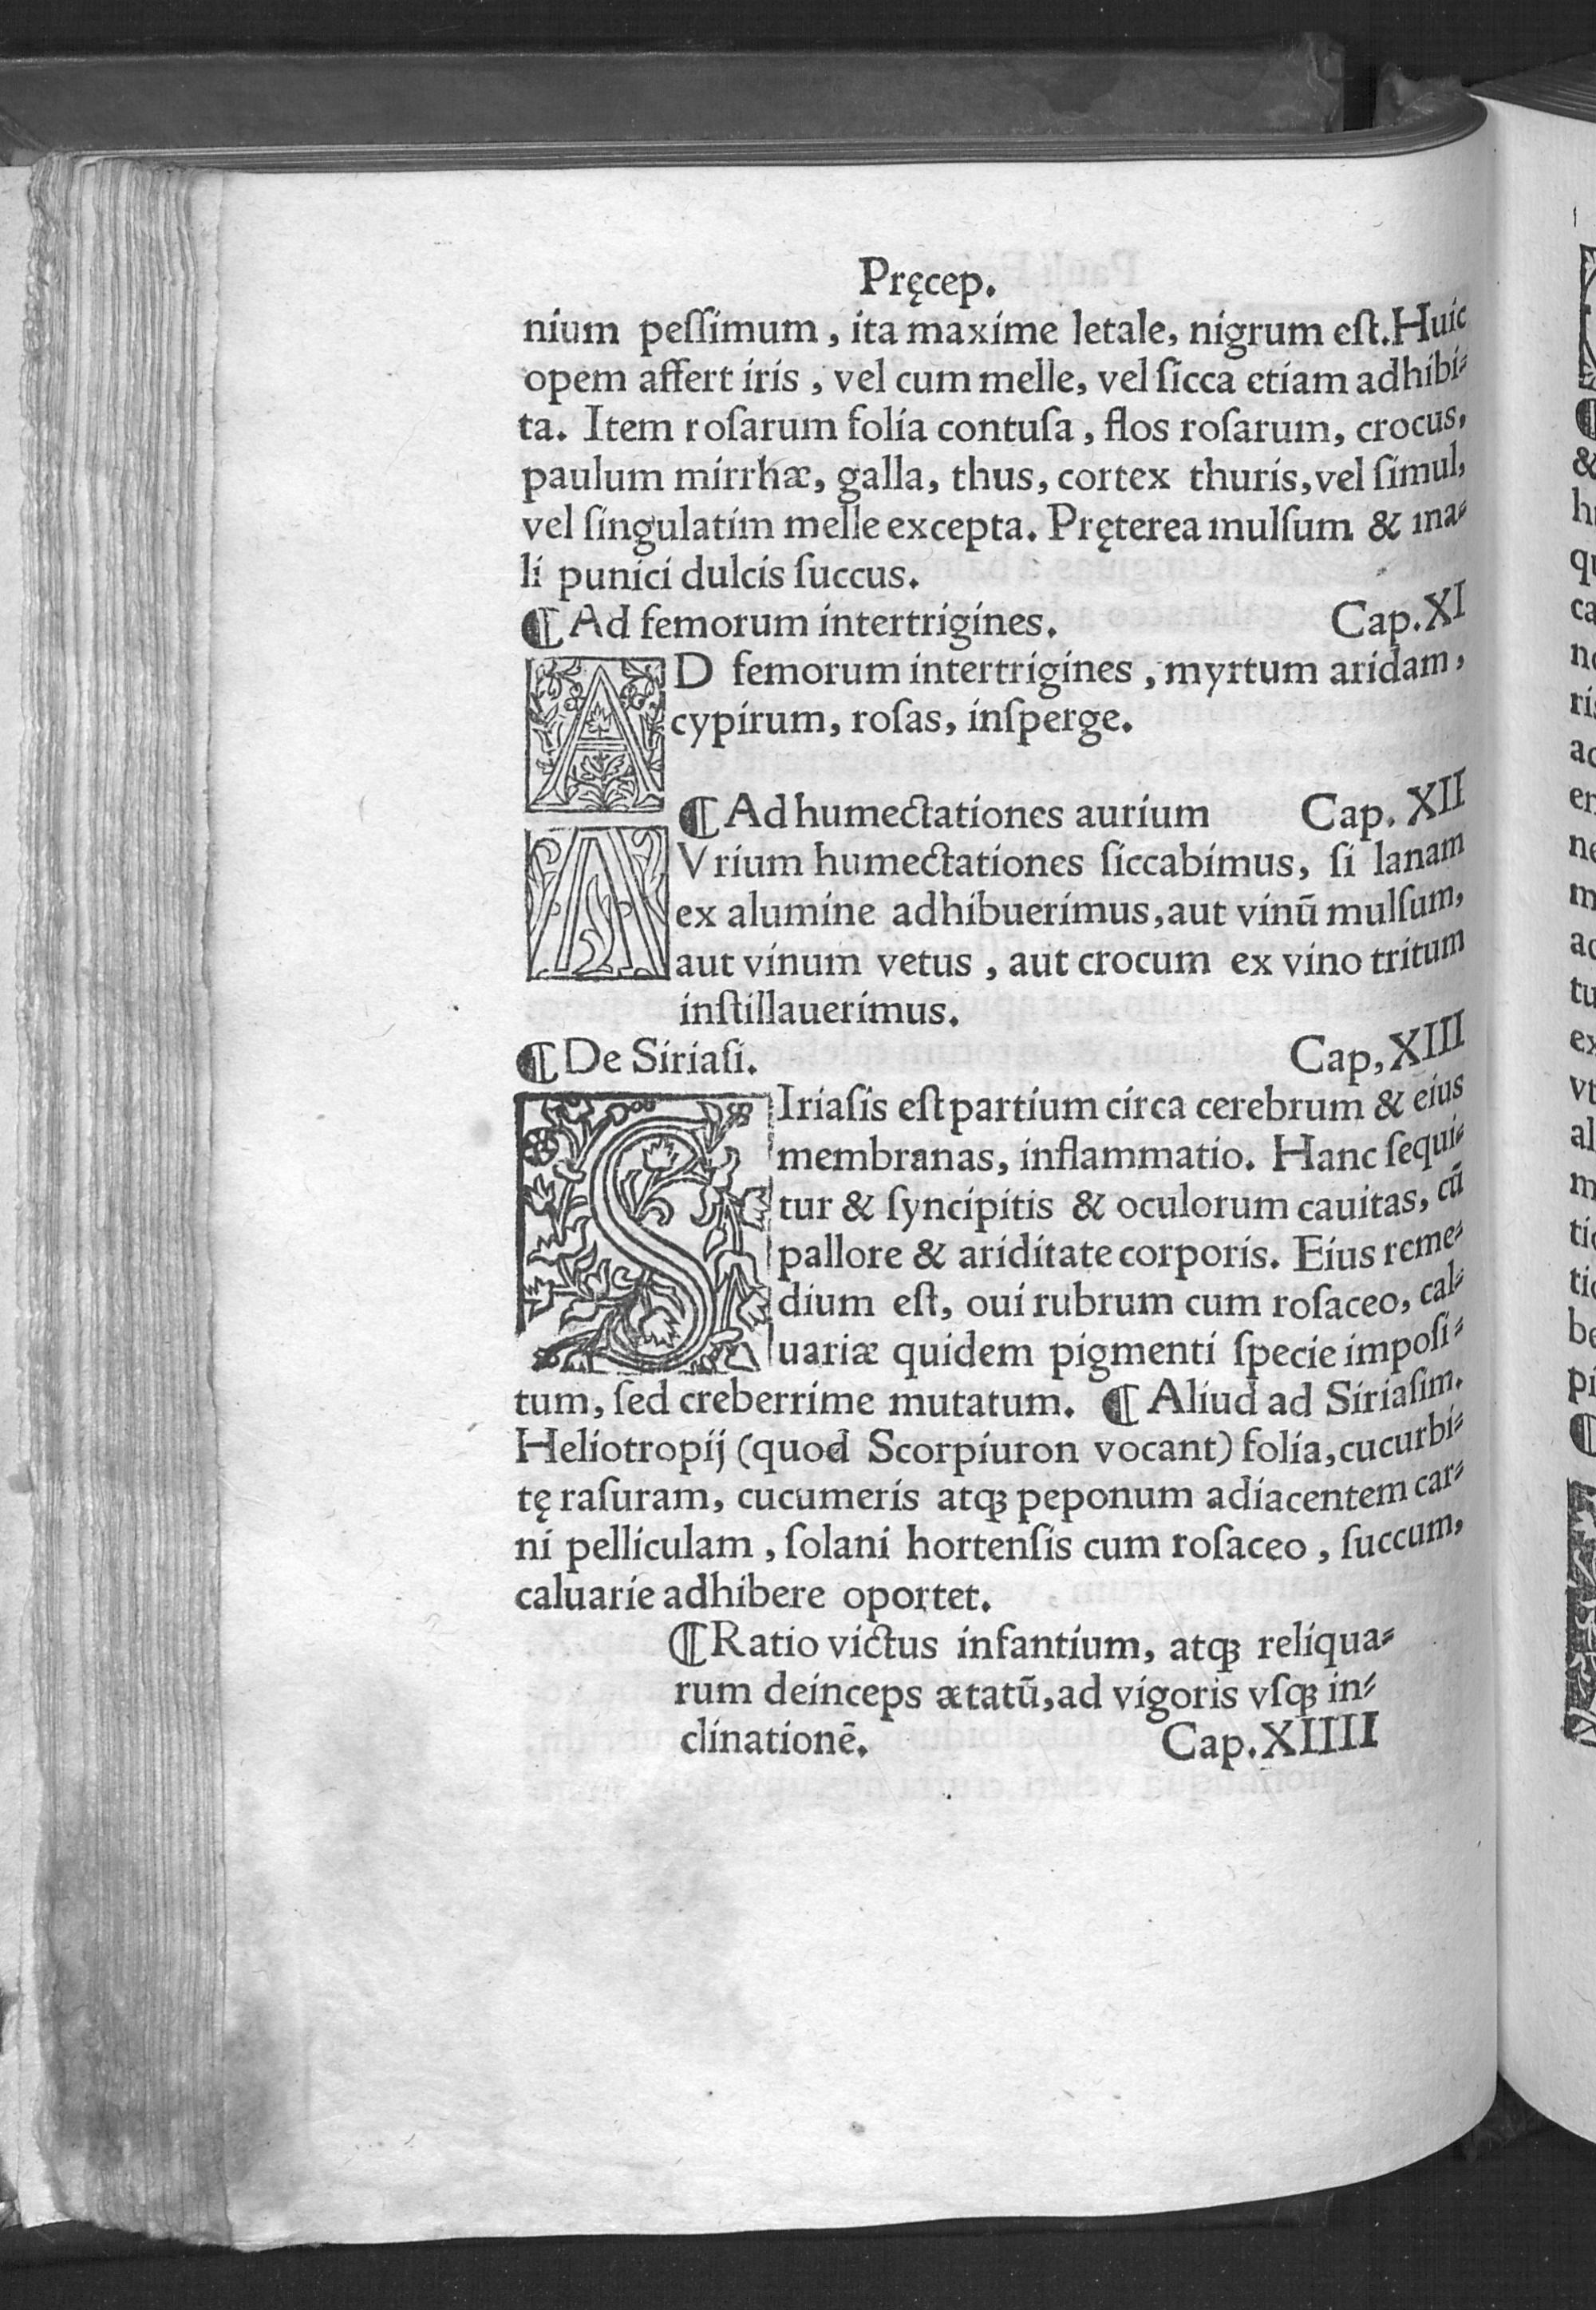 Pręcep.
nium peſſimum, ita maxime letale, nigrum eſt. Huic
opem affert iris, vel cum melle, vel ſicca etiam adhibi⸗
ta. Item roſarum folia contuſa, flos roſarum, crocus,
paulum mirrhæ, galla, thus, cortex thuris, vel ſimul,
vel ſingulatim melle excepta. Pręterea mulſum & ma⸗
li punici dulcis ſuccus.
¶ Ad femorum intertrigines. Cap. XI
AD femorum intertrigines, myrtum aridam,
cypirum, roſas, inſperge.
¶ Ad humectationes aurium Cap. XII
AVrium humectationes ſiccabimus, ſi lanam
ex alumine adhibuerimus, aut vinū mulſum,
aut vinum vetus, aut crocum ex vino tritum
inſtillauerimus.
¶ De Siriaſi. Cap, XIII
SIriaſis eſt partium circa cerebrum & eius
membranas, inflammatio. Hanc ſequi⸗
tur & ſyncipitis & oculorum cauitas, cū
pallore & ariditate corporis. Eius reme⸗
dium eſt, oui rubrum cum roſaceo, cal⸗
uariæ quidem pigmenti ſpecie impoſi⸗
tum, ſed creberrime mutatum. ¶ Aliud ad Siriaſim.
Heliotropij (quod Scorpiuron vocant) folia, cucurbi⸗
tę raſuram, cucumeris atqꝫ peponum adiacentem car⸗
ni pelliculam, ſolani hortenſis cum roſaceo, ſuccum,
caluarie adhibere oportet.
¶ Ratio victus infantium, atqꝫ reliqua⸗
rum deinceps ætatū, ad vigoris vſqꝫ in⸗
clinationē. Cap. XIIII